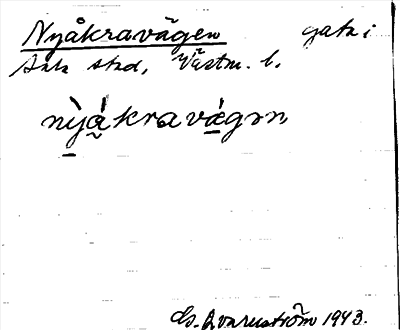 Nyåkravägen gata i
Sala stad, Västm. l.
nỳä́kravägən
G. Qvarnström 1943.